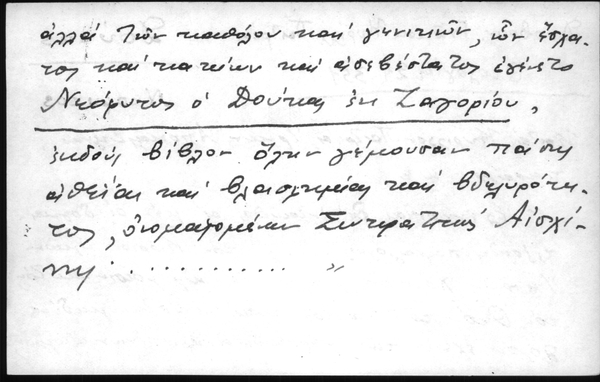 ἀλλά τῶν καθόλου καί γενικῶν, ὧν ἔσχα-
τος καί κακίων καί ἀσεβέστατος ἐγένετο
Νεόφυτος ὁ Δούκας ἐκ Ζαγορίου,
ἐκδούς βίβλον ὅλην γέμουσαν πάσης
ἀθεΐας καί βλασφημίας καί βδελυρότη-
τος, ὀνομαζομένην Σωκρατικός Αἰσχί-
νης . . . . . . . . . . . . »